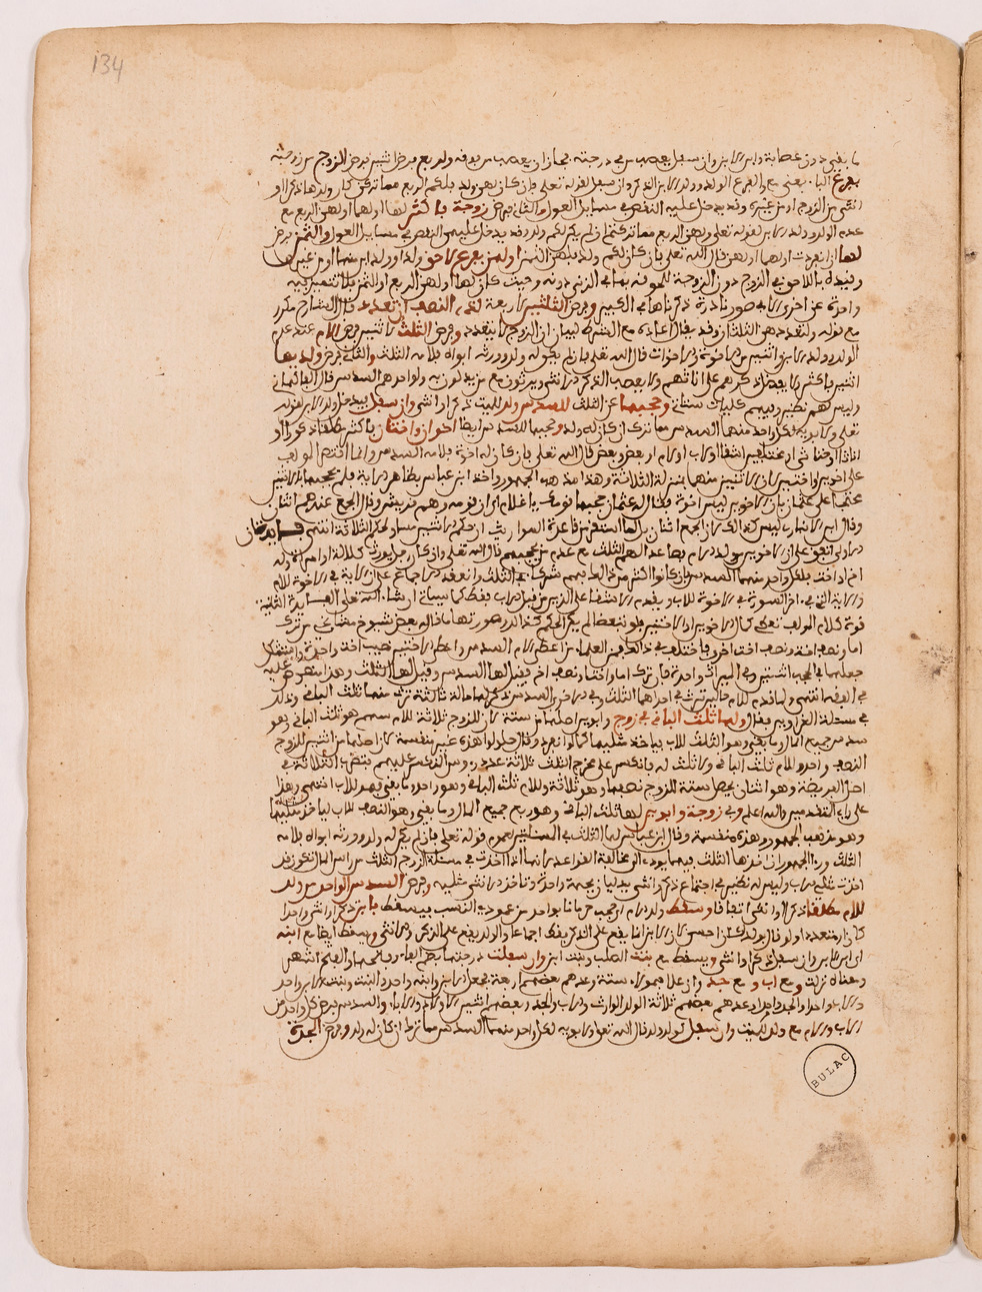 134
ما بقي دون عصابة وابن الابن وان سفل يعصب من في درجته فجاز ان يعصب من فوقه ولربع فرض اثنين فرض الزوج من زوجته
بفرع الباء بمعنى مع والفرع الولد وولد الابن الذكر وان سفل لقوله تعلى فان كان لهن ولد فلكم الربع مما تركن كان ولدها ذكرا او
انثى من الزوج او من غيره وقد يدخل عليه النقص في مسايل العول والثاني فرض زوجة فاكثر لها او لهما او لهن الربع مع
عدم الولد وولد الابن لقوله تعلى ولهن الربع مما تركتم ان لم يكن لكم ولد وقد يدخل عليهن النقص في مسايل العول والثمن فرض
لها ان انفردت او لهما او لهن قال الله تعلى فان كان لكم ولد فلهن الثمن او لهن بفرع لاحق ولد او ولد ابن منها او من غيرها
وقيده باللاحق في الزوج دون الزوجة للحوقه بها في الزنى دونه وحيث كان لها او لهن الربع او الثمن فلا تتميز فيه
واحدة عن اخرى الا في صور نادرة ذكرناها في الكبير وفرض الثلثين لاربعة لذي النصف ان تعدد قال الشارح مكرر
مع قوله ولتعددهن الثلثان وقد يقال اعاده مع الشرط لبيان ان الزوج لا يتعدد وفرض الثلث لاثنين فرض الام عند عدم
الولد وولد الابن واثنين من الاخوة والاخوات قال الله تعلى فان لم يكن له ولد وورثه ابواه فلامه الثلث والثاني فرض ولديها
اثنين فاكثر لا يفضل ذكرهم على انثاهم ولا يعصب الذكر الانثى ويرثون مع من يدلون به ولواحدهم السدس قال الفاكهاني
وليس لهم نظير وفيهم كليات ستاتي وحجبها عن الثلث للسدس ولد للميت ذكرا او انثى وان سفل فيدخل ولد الابن لقوله
تعلى ولابويه لكل واحد منهما السدس مما ترك ان كان له ولد وحجبها للسدس ايضا اخوان او اختان فاكثر مطلقا ذكورا او
اناثا او خناثى او مختلفين اشقا او لاب او لام او بعض وبعض قال الله تعلى فان كان له اخوة فلامه السدس وانما اقتصر المولف
على اخوين او اختين لان الاثنين منهما بمنزلة الثلاثة وهذا مذهب الجمهور واخذ ابن عباس بظاهر الاية فلم يحجبها بالاثنين
محتجا على عثمان بان الاخوين ليس اخوة فقال له عثمان حجبها قومك يا غلام اي ان قومه وهم قريش وقال الجمع عندهم اثنان
وقال ابن الانباري ليس كذلك لان الجمع اثنان بل لما استقر من قاعدة المواريث ان حكم الاثنين مساو لحكم الثلاثة انتهى فايدتان
الاولى اتفق على ان الاخوين من ولد الام لهما عدا لهم الثلث مع عدم من يحجبهم قال الله تعلى وان كان رجل يورث كلالة او امراة وله
اخ او اخت فلكل واحد منهما السدس فان كانوا اكثر من ذلك فهم شركا في الثلث وانعقد الاجماع على ان الاية في الاخوة للام
والاية التي في اخر السورة في الاخوة للاب ويقدم الاشقا على الذين من قبل الاب فقط كما سياتي ان شا الله تعلى الفايدة الثانية
قوة كلام المولف تعطي كمال الاخوين او الاختين فلو تبعضا لم يكن الحكم كذلك وصورتها ما قاله بعض شيوخ مشايخي من ترك
اما ونصف اخت ونصف اخت اخرى فاختلف في ذلك فمن العلما من اعطى الام السدس واعطى الاختين نصيب اخت واحدة واستشكل
جعلهما في الحجب اثنتين وفي الميراث واحدة فان ترك اما واختا ونصف اخ فقيل لها السدس وقيل لها الثلث وهذا منصوص عليه
في الفقه انتهى ولما قدم للام حالين ترث في احدهما الثلث وفي الاخرى السدس ذكر لها حالة ثالثة ترث منها ثلث الباقي وذلك
في مسئلة الغراوين فقال ولها ثلث الباقي في زوج وابوين اصلها من ستة لان للزوج ثلاثة للام سهم هو ثلث الباقي وهو
سدس جميع المال وما بقي وهو الثلث للاب فياخذ مثليها كما لو انفردا وقال حلولوا هذه غير منقسمة لان اصلها من اثنين للزوج
النصف واحد وللام ثلث الباقي ولا ثلث له فانكسر على مخرج الثلث ثلاثة عدد روس المنكسر عليهم فتضرب الثلاثة في
اصل الفريضة وهو اثنان يحصل ستة للزوج نصفها وهو ثلاثة وللام ثلث الباقي وهو واحد وما بقي فهو للاب انتهى وهذا
على راي المتقدمين والله اعلم وفي زوجة وابوين لها ثلث الباقي وهو ربع جميع المال وما بقي وهو النصف للاب لياخذ مثليها
وهو مذهب الجمهور وهذه منقسمة وقال ابن عباس لها الثلث في المسئلتين لعموم قوله تعلى فان لم يكن له ولد وورثه ابواه فلامه
الثلث وراى الجمهور ان اخذها الثلث فيهما يودي الى مخالفة القواعد لانها اذا اخذت في مسئلة الزوج الثلث من راس المال تكون قد
اخذت مثلي الاب وليس له نظير في اجتماع ذكر وانثى يدليان بجهة واحدة وتاخذ الانثى مثليه وفرض السدس الواحد من ولد
الام مطلقا ذكرا او انثى اتفاقا وسقط ولد الام اي حجب حرمانا بواحد من عمودي النسب فيسقط بابن ذكرا او انثى واحدا
كان او متعددا ولو قال بولد لكان احسن لان الابن انما يقع على الذكر فقط اجماعا والولد يقع على الذكر والانثى ويسقط ايضا مع ابنه
اي ابن الابن وان سفل ذكرا او انثى ويسقط مع بنت الصلب وبنت ابن وان سفلت
ومعناه نزلت ومع اب ومع جد وان علا فهولاء ستة وعدهم بعضهم اربعة بجعل الابن وابنه واحدا والبنت وبنت الابن واحدا
والاب واحدا والجد واحدا وعدهم بعضهم ثلاثة الولد الوارث والاب والجد وبعضهم اثنين الاولاد والاباء والسدس فرض كل واحد من
الاب والام مع ولد للميت وان سفل كولد ولد قال الله تعلى ولابويه لكل واحد منهما السدس مما ترك ان كان له ولد وفرض الجدة
BULAC